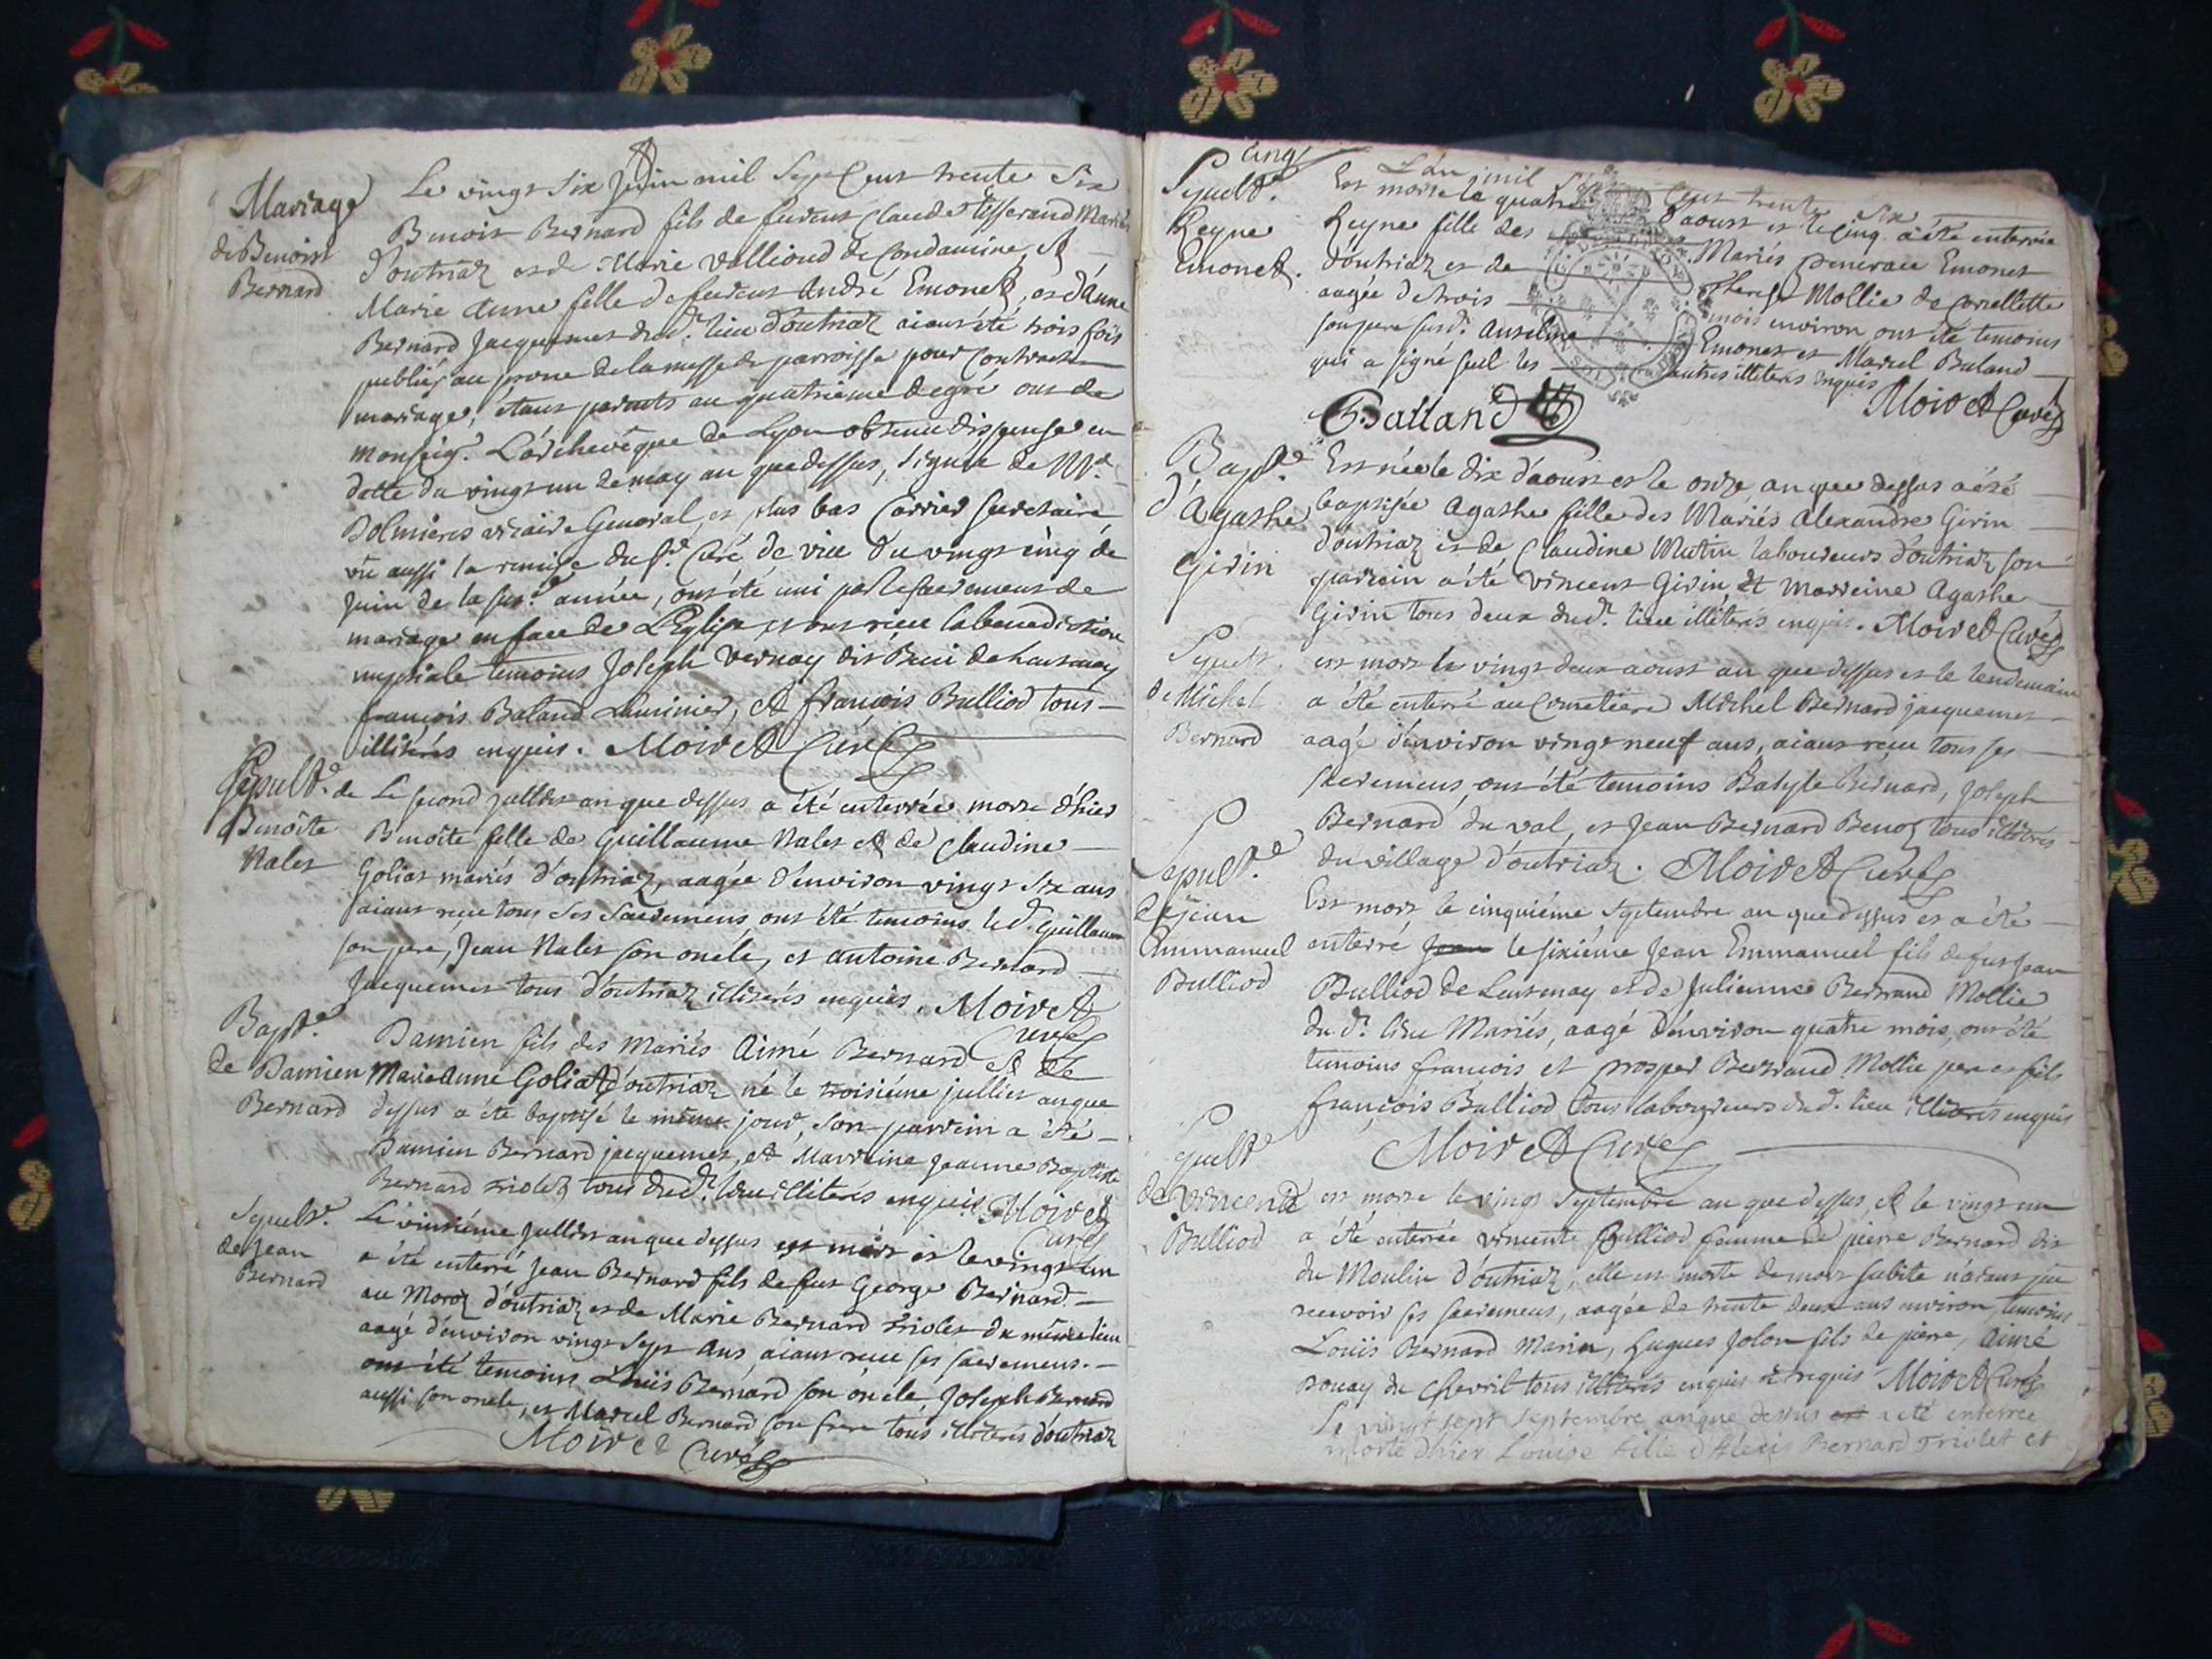 Mariage
de Benoist
Bernard
Le vingt Six juin mil Sept Cent trente Six
Benoit Bernard fils de feu Claude tisserand Mariés
d'outriaz et de Marie Vallioud de Condamine, et
Marie Anne fille de feu André Emonet, et d'Anne
Bernard Jacquemet dud.t lieu d'outriaz aiant été trois fois
publiés au prone de la messe de parroisse pour Contracter
mariage, étant parents au quatrieme degré ont de
Monseig.r L'archevêque de Lyon obtenu dispense en
datte du vingt un de may an que dessus, signée de M.r
Dolmieres vicaire General, et plus bas Carrier secretaire
vû aussi la remise du s.r Curé de vieu du vingt cinq de
juin de la sus.e année, ont été uni par le sacrement de
mariage en face de L'Eglise et ont receu la benediction
nuptiale temoins Joseph Vernay dit
françois Baland, et françois Bulliod tous
illiterés enquis. Moiret Curé
Sépult.e de
Benoîte
Nales
Le second juillet an que dessus a été enterrée morte d'hier
Benoîte fille de Guillaume Nales et de Claudine
Goliat mariés d'outriaz, aagée d'environ vingt six ans
aiant receu tous ses Sacremens, ont été temoins led. Guillaume
son pere, Jean Nales son oncle, et antoine Bernard
Jacquemet tous d'outriaz illiterés enquis. Moiret
Curé
Bapt.e
de Damien
Bernard
Damien fils des Mariés Aimé Bernard et de
Marie Anne Goliat d'outriaz né le troisiéme juillet an que
dessus a été baptisé le même jour, son parrein a été
Damien Bernard jacquemet, et Marreine Jeanne Baptiste
Bernard triolet tous dud.t lieu illiterés enquis Moiret
Curé
Sepult.e
de Jean
Bernard
Le vintiéme juillet an que dessus est mort et le vingt un
a été enterré Jean Bernard fils de feu George Bernard
au Moroz d'outriaz et de Marie Bernard triolet du même lieu
aagé d'environ vingt sept ans, aiant receu ses sacremens.
ont été temoins Louïs Bernard son oncle, Joseph Bernard
aussi son oncle, et Marcel Bernard son frere tous illiterés d'outriaz
Moiret Curé
Cinq
L'an mil Sept Cent trente Six
Sepult.e
Reyne
Emonet.
Est morte le quatre d'aoust et le cinq a été enterrée
Reyne fille des Mariés Emonet
d'outriaz et de Therese Mollie de Cornellette
aagée de trois mois environ ont été temoins
son pere susd.t Anselme Emonet et Marcel Baland
qui a signé seul les autres illiterés enquis
Balland Moiret Curé
Bapt.e
d'Agathe
Girin
Est née le dix d'aoust et le onze an que dessus a été
baptisée Agathe fille des Mariés Alexandre Girin
d'outriaz et de Claudine Mutin laboureurs d'outriaz son
parrein a été vincent Girin, et Marreine Agathe
Girin tous deux dud.t lieu illiterés enquis. Moiret Curé
Sepult.
de Michel
Bernard
est mort le vingt deux aoust an que dessus et le lendemain
a été enterré au Cimetiere Michel Bernard jacquemet
aagé d'environ vingt neuf ans, aiant receu tous ses
sacremens, ont été temoins Batyste Bernard, Joseph
Bernard du val, et Jean Bernard Benoz tous illiterés
du village d'outriaz. Moiret Curé
Sepult.e
de Jean
Emmanuel
Bulliod
Est mort le cinquiéme Septembre an que dessus et a été
enterré Jean le sixiéme Jean Emmanuel fils de feu Jean
Bulliod de Lantenay et de Julienne Bertrand Mollie
du d.t lieu Mariés, aagé d'environ quatre mois, ont été
temoins françois et prosper Bertrand Mollie pere et fils
françois Bulliod tous laboureurs dud.t lieu illiterés enquis
Moiret Curé
Sepult.e
de Vincente
Bulliod
est morte le vingt Septembre an que dessus, et le vingt un
a été enterrée vincente Bulliod femme de pierre Bernard dit
du Moulin d'outriaz, elle est morte de mort subite n'aiant pu
recevoir ses sacremens, aagée de trente deux ans environ, temoins
Louïs Bernard Marin, hugues Jolon fils de pierre, Aimé
Bouay du Chevril tous illiterés enquis et requis Moiret Curé
Le vingt sept septembre an que dessus est a été enterrée
morte d'hier Louise fille d'Alexis Bernard Triolet et